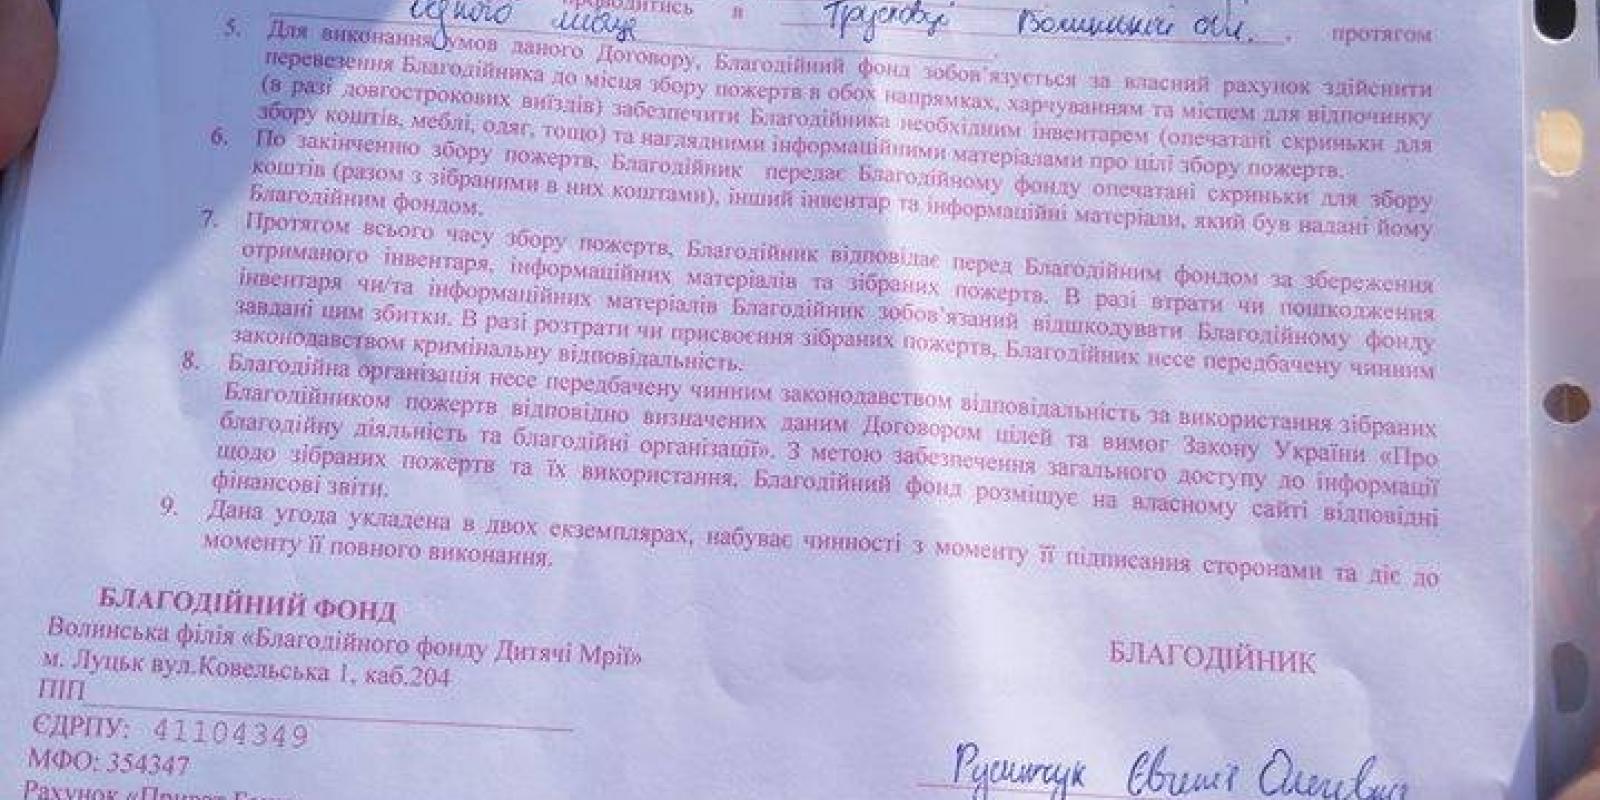 проводитись в Волинській обл. , протягом
одного місця
5. Для виконання умов даного Договору, Благодійний фонд зобов'язується за власний рахунок здійснити
перевезення Благодійника до місця збору пожертв в обох напрямках, харчуванням та місцем для відпочинку
(в разі довгострокових виїздів) забезпечити Благодійника необхідним інвентарем (опечатані скриньки для
збору коштів, меблі, одяг, тощо) та наглядними інформаційними матеріалами про цілі збору пожертв.
6. По закінченню збору пожертв, Благодійник передає Благодійному фонду опечатані скриньки для збору
коштів (разом з зібраними в них коштами), інший інвентар та інформаційні матеріали, який був надані йому
Благодійним фондом.
7. Протягом всього часу збору пожертв, Благодійник відповідає перед Благодійним фондом за збереження
отриманого інвентаря, інформаційних матеріалів та зібраних пожертв. В разі втрати чи пошкодження
інвентаря чи/та інформаційних матеріалів Благодійник зобов'язаний відшкодувати Благодійному фонду
завдані цим збитки. В разі розтрати чи присвоєння зібраних пожертв, Благодійник несе передбачену чинним
законодавством кримінальну відповідальність.
8. Благодійна організація несе передбачену чинним законодавством відповідальність за використання зібраних
Благодійником пожертв відповідно визначених даним Договором цілей та вимог Закону України «Про
благодійну діяльність та благодійні організації». З метою забезпечення загального доступу до інформації
щодо зібраних пожертв та їх використання, Благодійний фонд розміщує на власному сайті відповідні
фінансові звіти.
9. Дана угода укладена в двох екземплярах, набуває чинності з моменту її підписання сторонами та діє до
моменту її повного виконання.
БЛАГОДІЙНИЙ ФОНД
Волинська філія «Благодійного фонду Дитячі Мрії»
м. Луцьк вул.Ковельська 1, каб.204
ПІП
ЄДРПУ: 41104349
МФО: 354347
Рахунок
БЛАГОДІЙНИК
Євгеній Олегович